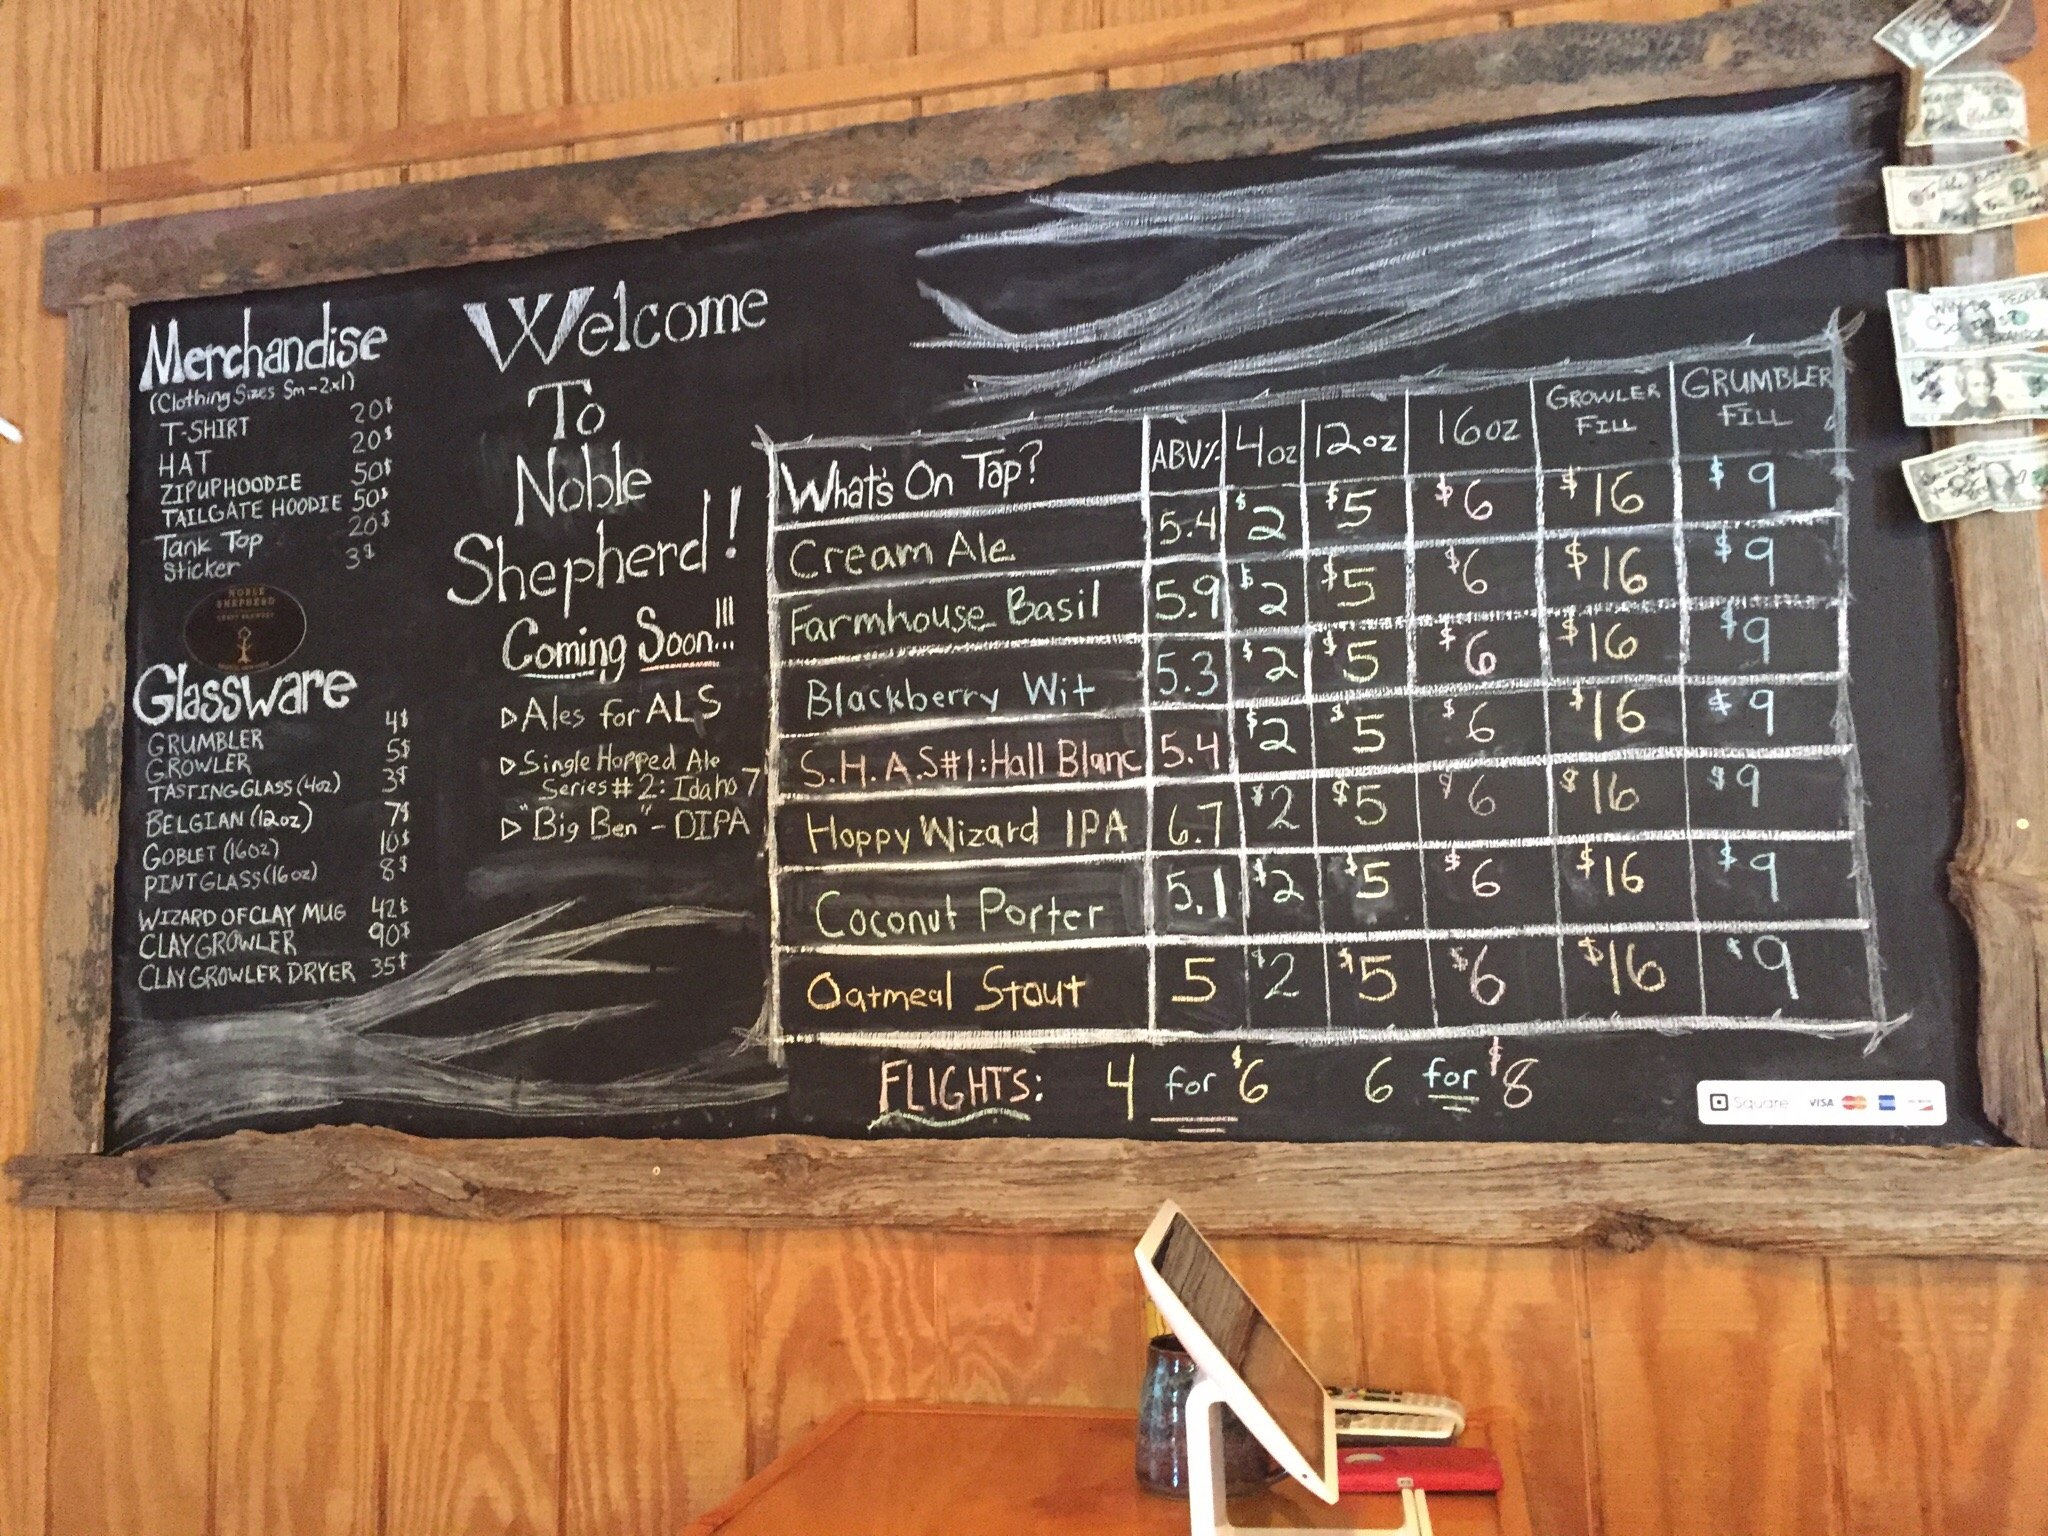 Merchandise
(Clothing Sizes Sm-2xl)
T-SHIRT 20$
HAT 20$
ZIPUPHOODIE 50$
TAILGATE HOODIE 50$
Tank Top 20$
Sticker 3$
NOBLE
SHEPHERD
CRAFT BREWERY
Glassware
GRUMBLER 4$
GROWLER 5$
TASTING GLASS (4oz) 3$
BELGIAN (12oz) 7$
GOBLET (16oz) 10$
PINT GLASS (16oz) 8$
WIZARD OF CLAY MUG 42$
CLAY GROWLER 90$
CLAY GROWLER DRYER 35$
Welcome
To
Noble
Shepherd!
Coming Soon!!!
▷ Ales for ALS
▷ Single Hopped Ale
Series #2: Idaho 7
▷ "Big Ben" - DIPA
What's On Tap? ABV% 4oz 12oz 16oz GROWLER FILL GRUMBLER FILL
Cream Ale 5.4 $2 $5 $6 $16 $9
Farmhouse Basil 5.9 $2 $5 $6 $16 $9
Blackberry Wit 5.3 $2 $5 $6 $16 $9
S.H.A.S#1: Hall Blanc 5.4 $2 $5 $6 $16 $9
Hoppy Wizard IPA 6.7 $2 $5 $6 $16 $9
Coconut Porter 5.1 $2 $5 $6 $16 $9
Oatmeal Stout 5 $2 $5 $6 $16 $9
FLIGHTS: 4 for $6 6 for $8
Square VISA